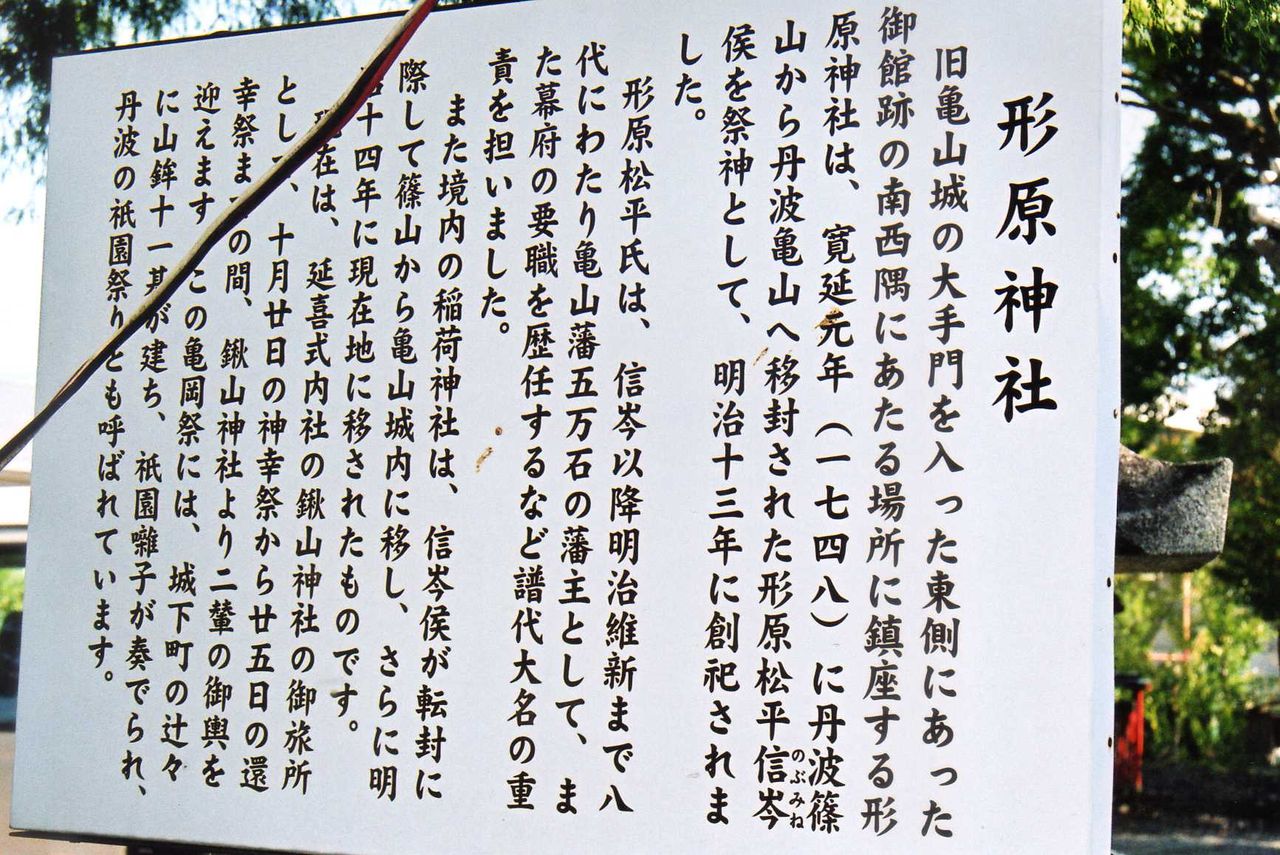 形原神社
旧亀山城の大手門を入った東側にあった
御館跡の南西隅にあたる場所に鎮座する形
原神社は、寛延元年（一七四八）に丹波篠
山から丹波亀山へ移封された形原松平信岑
のぶみね
侯を祭神として、明治十三年に創祀されま
した。
形原松平氏は、信岑以降明治維新まで八
代にわたり亀山藩五万石の藩主として、ま
た幕府の要職を歴任するなど譜代大名の重
責を担いました。
また境内の稲荷神社は、信岑侯が転封に
際して篠山から亀山城内に移し、さらに明
十四年に現在地に移されたものです。
在は、延喜式内社の鍬山神社の御旅所
として、十月廿日の神幸祭から廿五日の還
幸祭までの間、鍬山神社より二輦の御輿を
迎えます この亀岡祭には、城下町の辻々
に山鉾十一基が建ち、祇園囃子が奏でられ、
丹波の祇園祭りとも呼ばれています。